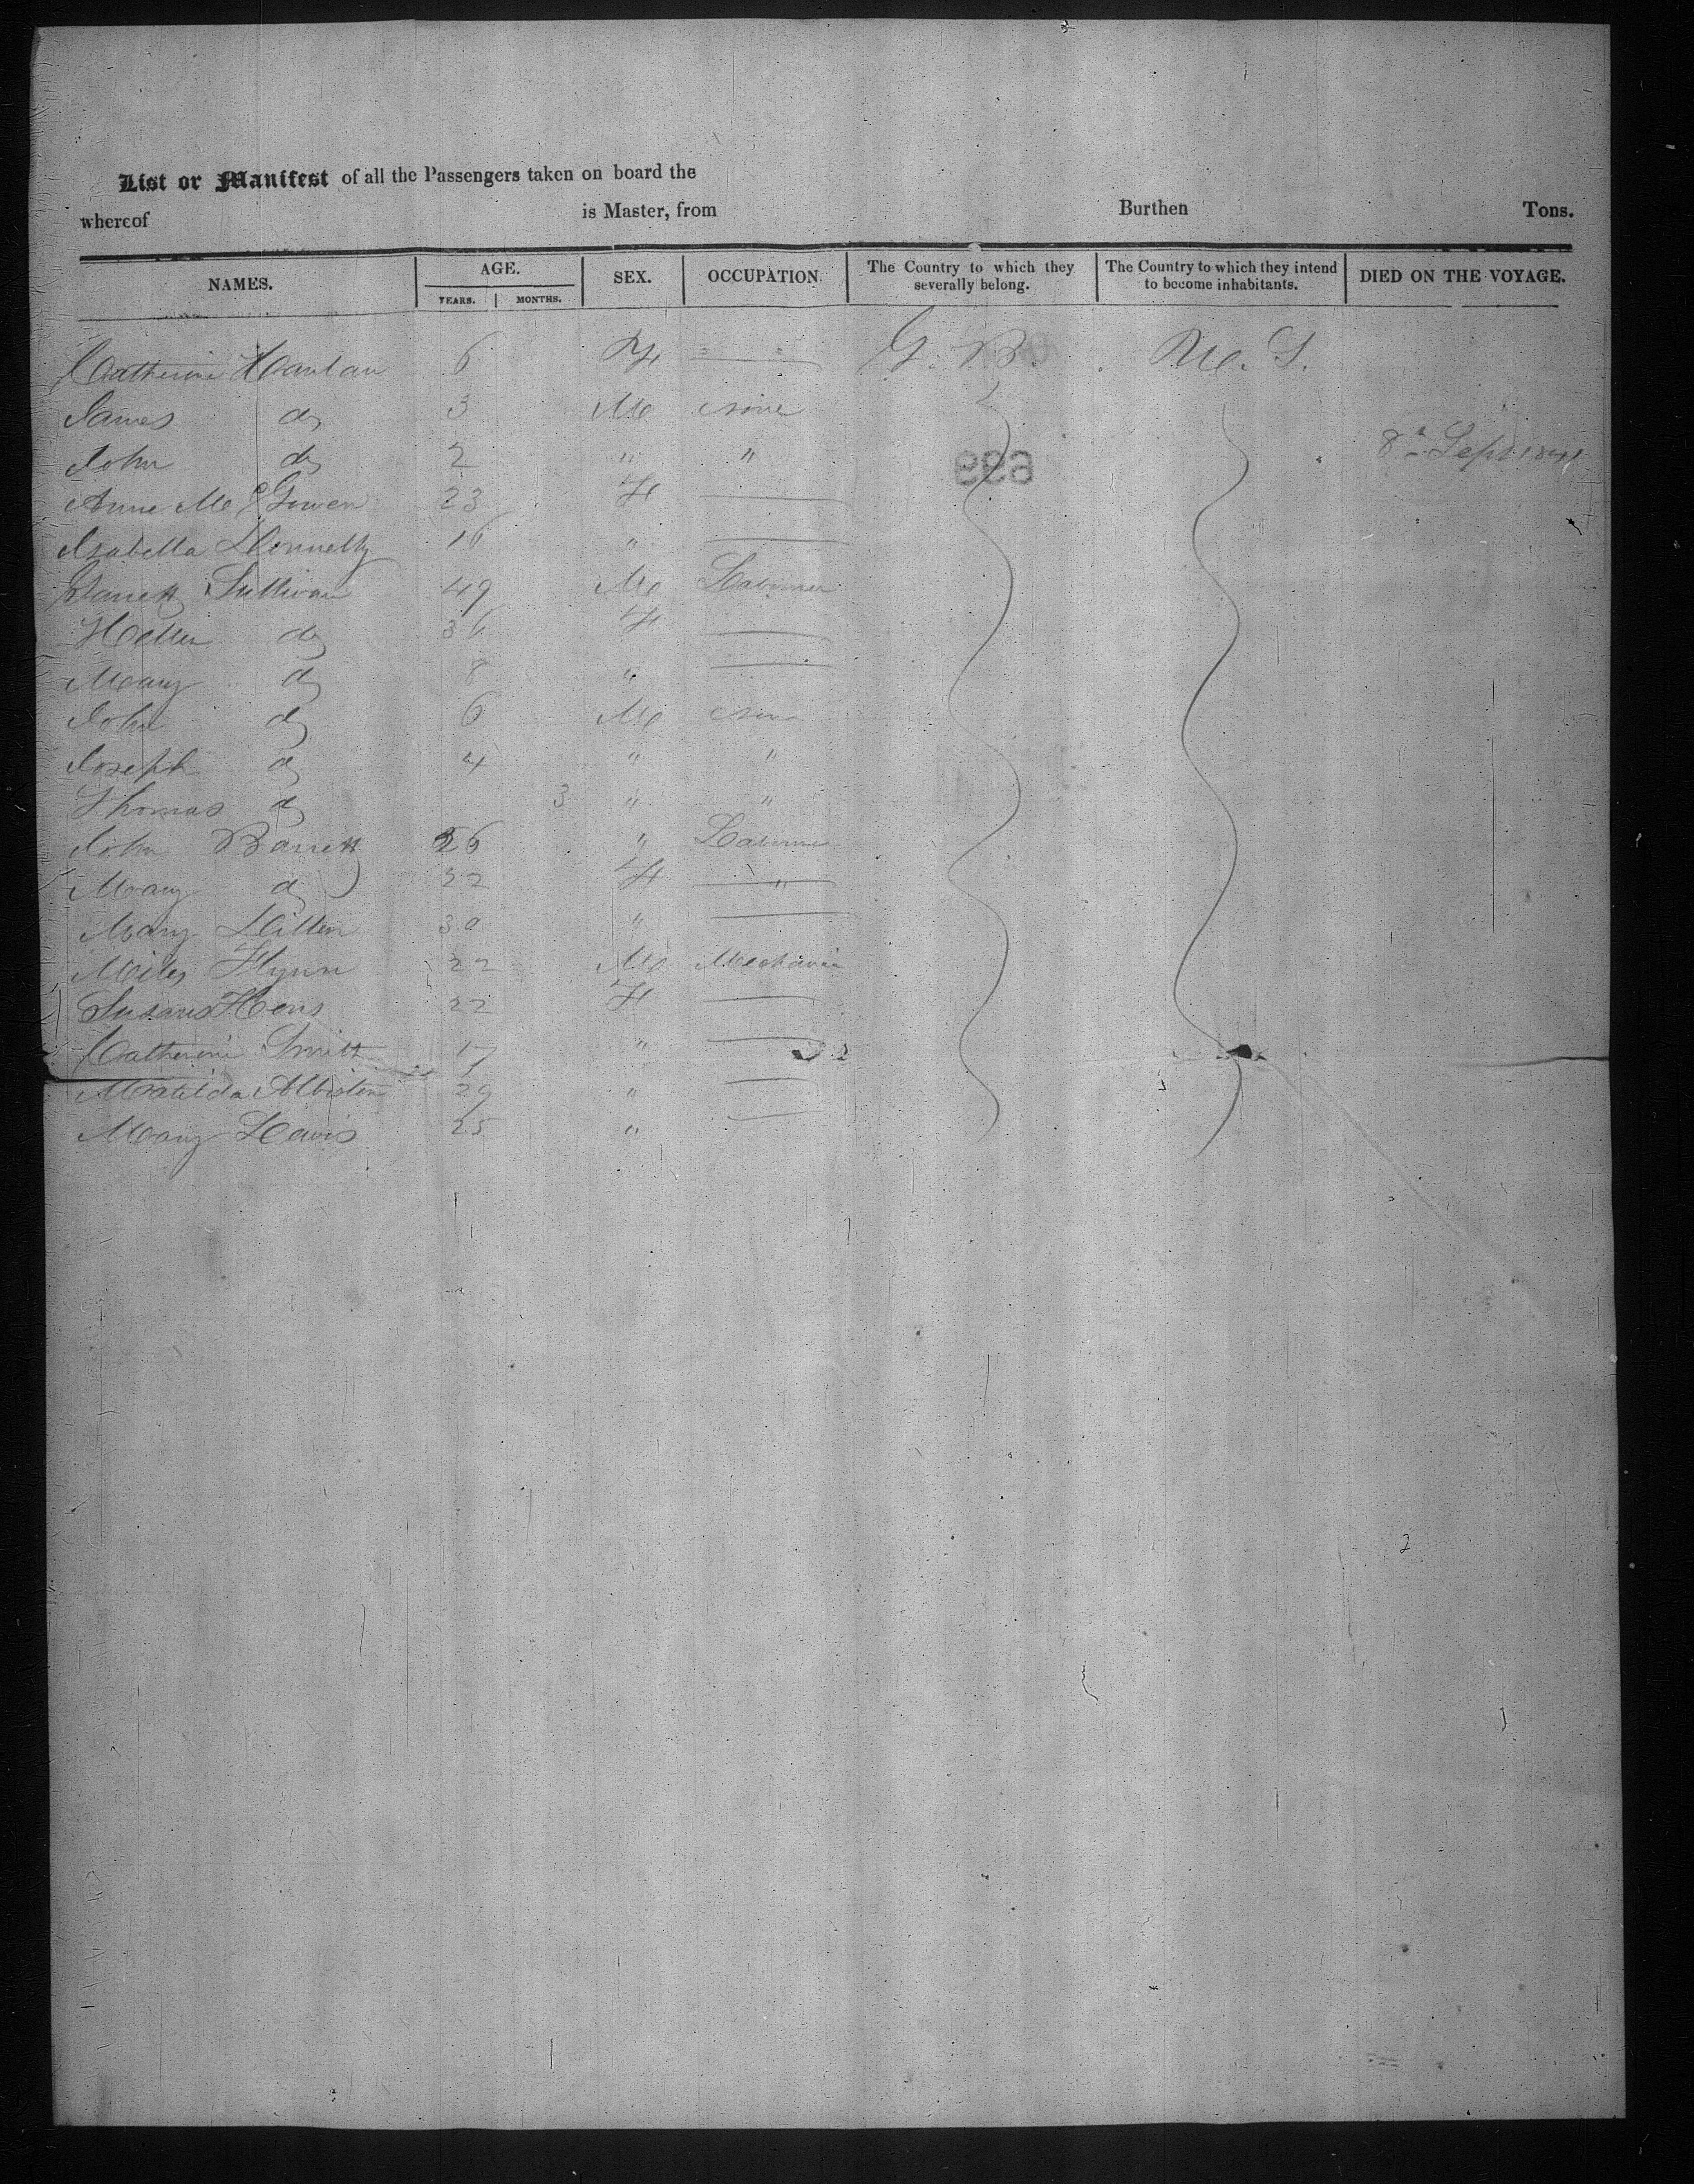 List or Manifest of all the Passengers taken on board the
whereof is Master, from Burthen Tons.
NAMES. AGE. YEARS. MONTHS. SEX. OCCUPATION. The Country to which they severally belong. The Country to which they intend to become inhabitants. DIED ON THE VOYAGE.
Catherine Hanlan 6 F G. B. U. S.
James do 3 M none
John do 2 " " 8th Sept 1841
Anne Mc Gowen 23 F
Isabella Donnelly 16 "
Garrett Sullivan 49 M Labourer
Hellen do 36 F
Mary do 8 "
John do 6 M
Joseph do 4 " "
Thomas do 3 " "
John Barrett 26 " Labourer
Mary do 22 F "
Mary Dillon 30 "
Miles Flynn 22 M Mechanic
Susan 22 F
Catherine Smith 17 "
Matilda Albiston 29 "
Mary Lewis 25 "